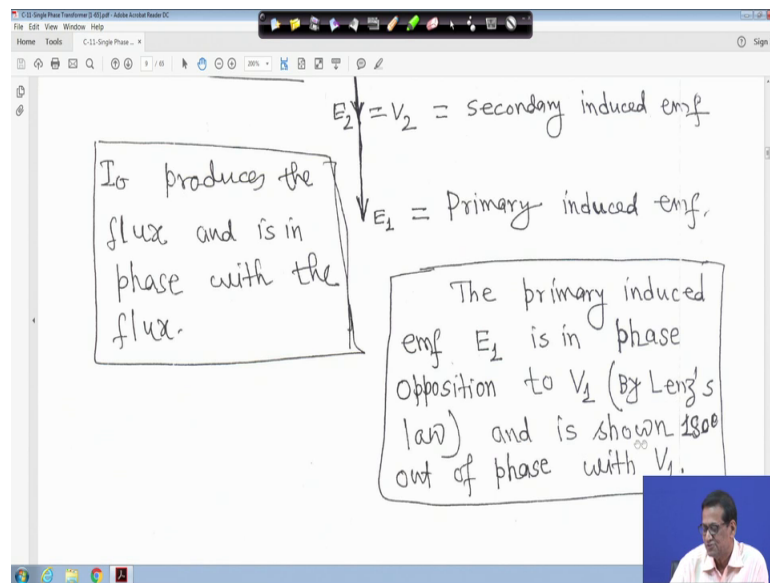 C-11-Single Phase Transformer [1-65].pdf - Adobe Acrobat Reader DC
File Edit View Window Help
Home Tools C-11-Single Phase ... × Sign
9 / 65 200%
E₂ = V₂ = secondary induced emf
E₁ = Primary induced emf.
I₀ produces the
flux and is in
phase with the
flux.
The primary induced
emf E₁ is in phase
opposition to V₁ (By Lenz's
law) and is shown 180°
out of phase with V₁.